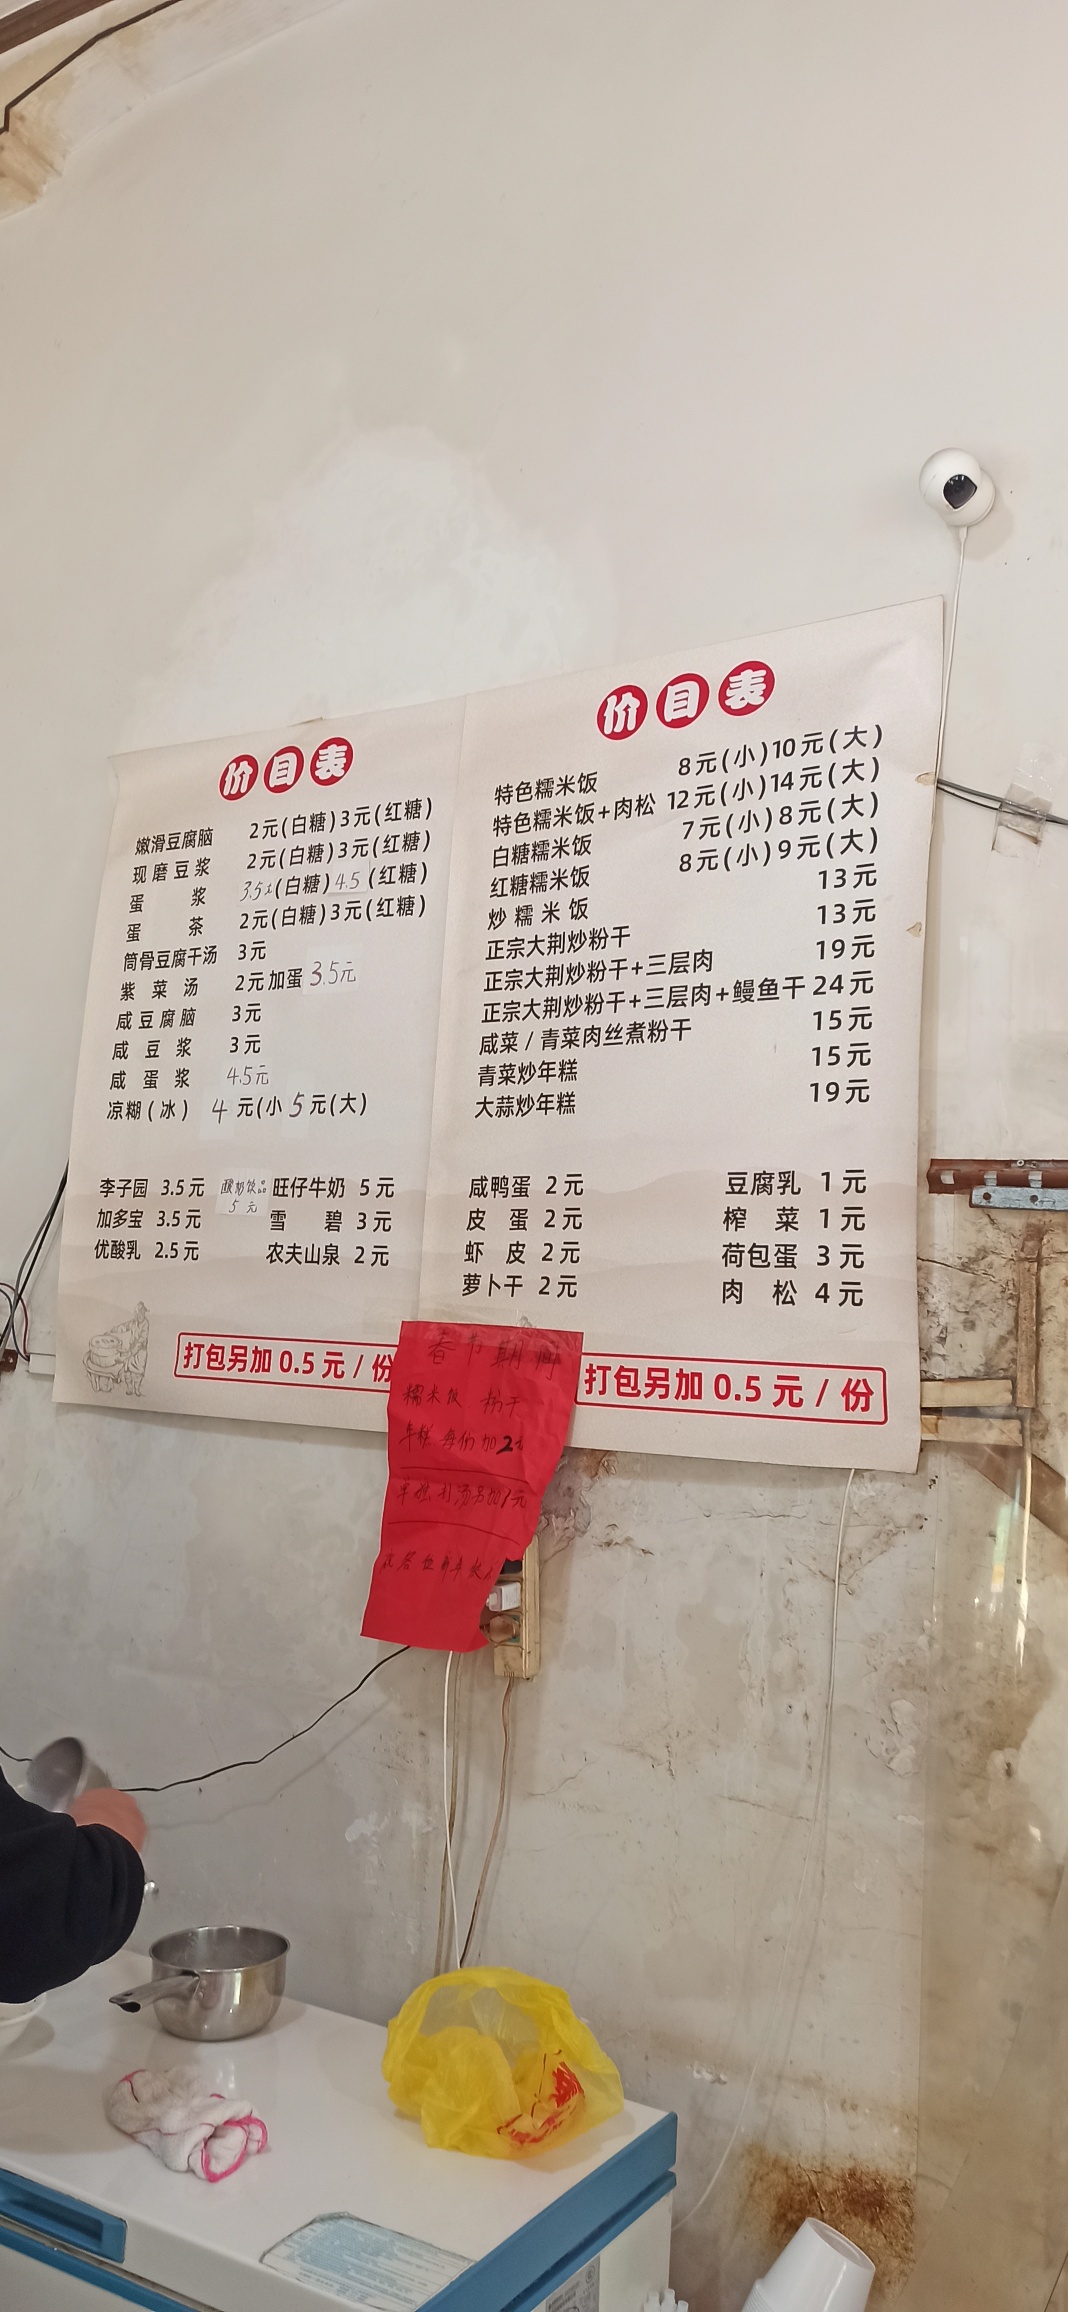 价目表
嫩滑豆腐脑 2元(白糖)3元(红糖)
现磨豆浆 2元(白糖)3元(红糖)
蛋浆 3.5元(白糖)4.5(红糖)
蛋茶 2元(白糖)3元(红糖)
筒骨豆腐干汤 3元
紫菜汤 2元加蛋3.5元
咸豆腐脑 3元
咸豆浆 3元
咸蛋浆 4.5元
凉糊(冰) 4元(小5元(大)
李子园 3.5元 酸奶饮品5元 旺仔牛奶 5元
加多宝 3.5元 雪碧 3元
优酸乳 2.5元 农夫山泉 2元
打包另加0.5元/份
价目表
特色糯米饭 8元(小)10元(大)
特色糯米饭+肉松 12元(小)14元(大)
白糖糯米饭 7元(小)8元(大)
红糖糯米饭 8元(小)9元(大)
炒糯米饭 13元
正宗大荆炒粉干 13元
正宗大荆炒粉干+三层肉 19元
正宗大荆炒粉干+三层肉+鳗鱼干 24元
咸菜/青菜肉丝煮粉干 15元
青菜炒年糕 15元
大蒜炒年糕 19元
咸鸭蛋 2元 豆腐乳 1元
皮蛋 2元 榨菜 1元
虾皮 2元 荷包蛋 3元
萝卜干 2元 肉松 4元
打包另加0.5元/份
春节期间
糯米饭 粉干
年糕 每份加2元
单独打汤另加1元